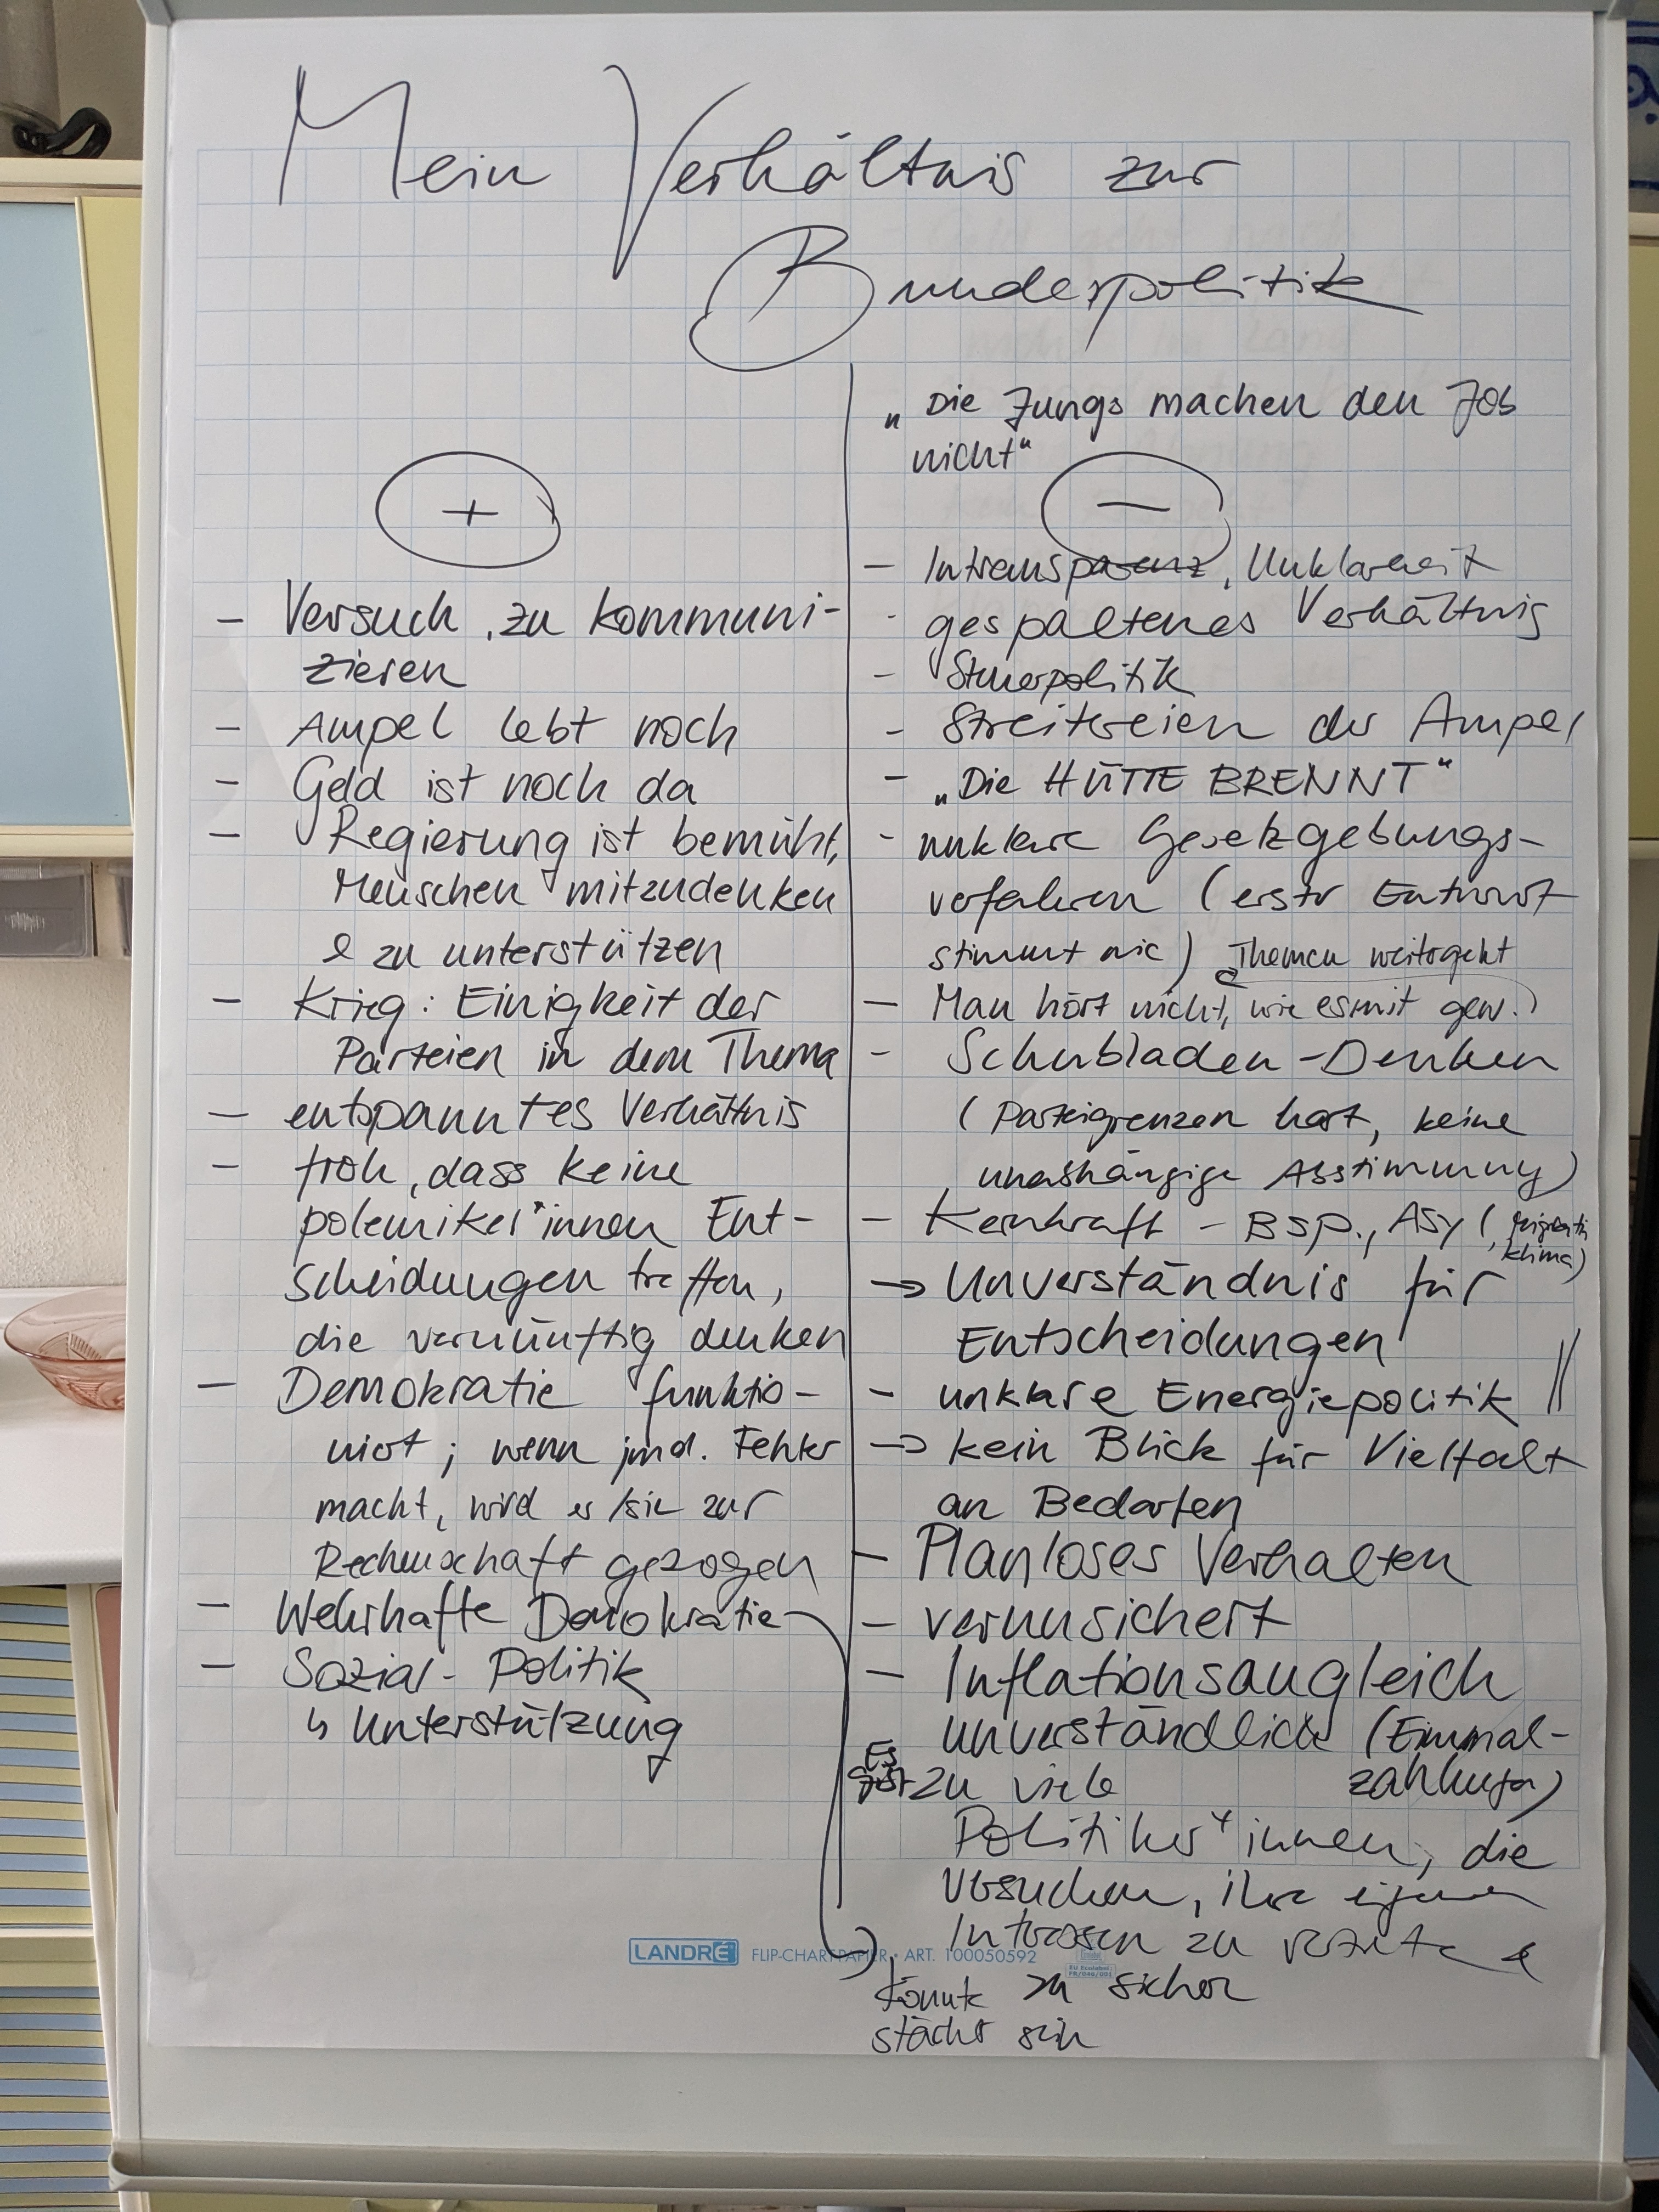 Mein Verhältnis zur
Bundespolitik
+
- Versuch, zu kommuni-
zieren
- Ampel lebt noch
- Geld ist noch da
- Regierung ist bemüht,
Menschen mitzudenken
& zu unterstützen
- Krieg: Einigkeit der
Parteien in dem Thema
- entspanntes Verhältnis
- froh, dass keine
polemiker*innen Ent-
scheidungen treffen,
die vernünftig denken
- Demokratie funktio-
niert; wenn jmd. Fehler
macht, wird er/sie zur
Rechenschaft gezogen
- Wehrhafte Demokratie
- Sozial-Politik
↳ Unterstützung
„Die Jungs machen den Job
nicht“
-
- Intransparenz, Unklarheit
- gespaltenes Verhältnis
- Steuerpolitik
- Streitereien der Ampel
- „Die HÜTTE BRENNT“
- unklare Gesetzgebungs-
verfahren (erster Entwurf
stimmt nie)
- Man hört nicht, wie es mit gew.
Themen weitergeht
- Schubladen-Denken
(Parteigrenzen hart, keine
unabhängige Abstimmung)
- Kernkraft - BSP., Asyl, Migration
Klima)
→ Unverständnis für
Entscheidungen
- unklare Energiepolitik
→ kein Blick für Vielfalt
an Bedarfen
- Planloses Verhalten
- verunsichert
- Inflationsaugleich
unverständlich (Einmal-
zahlungen)
Es gibt zu viele
Politiker*innen, die
versuchen, ihre eigenen
Interessen zu vertreten
könnte
stärker sein
LANDRÉ FLIP-CHART-PAPIER • ART. 100050592
EU Ecolabel